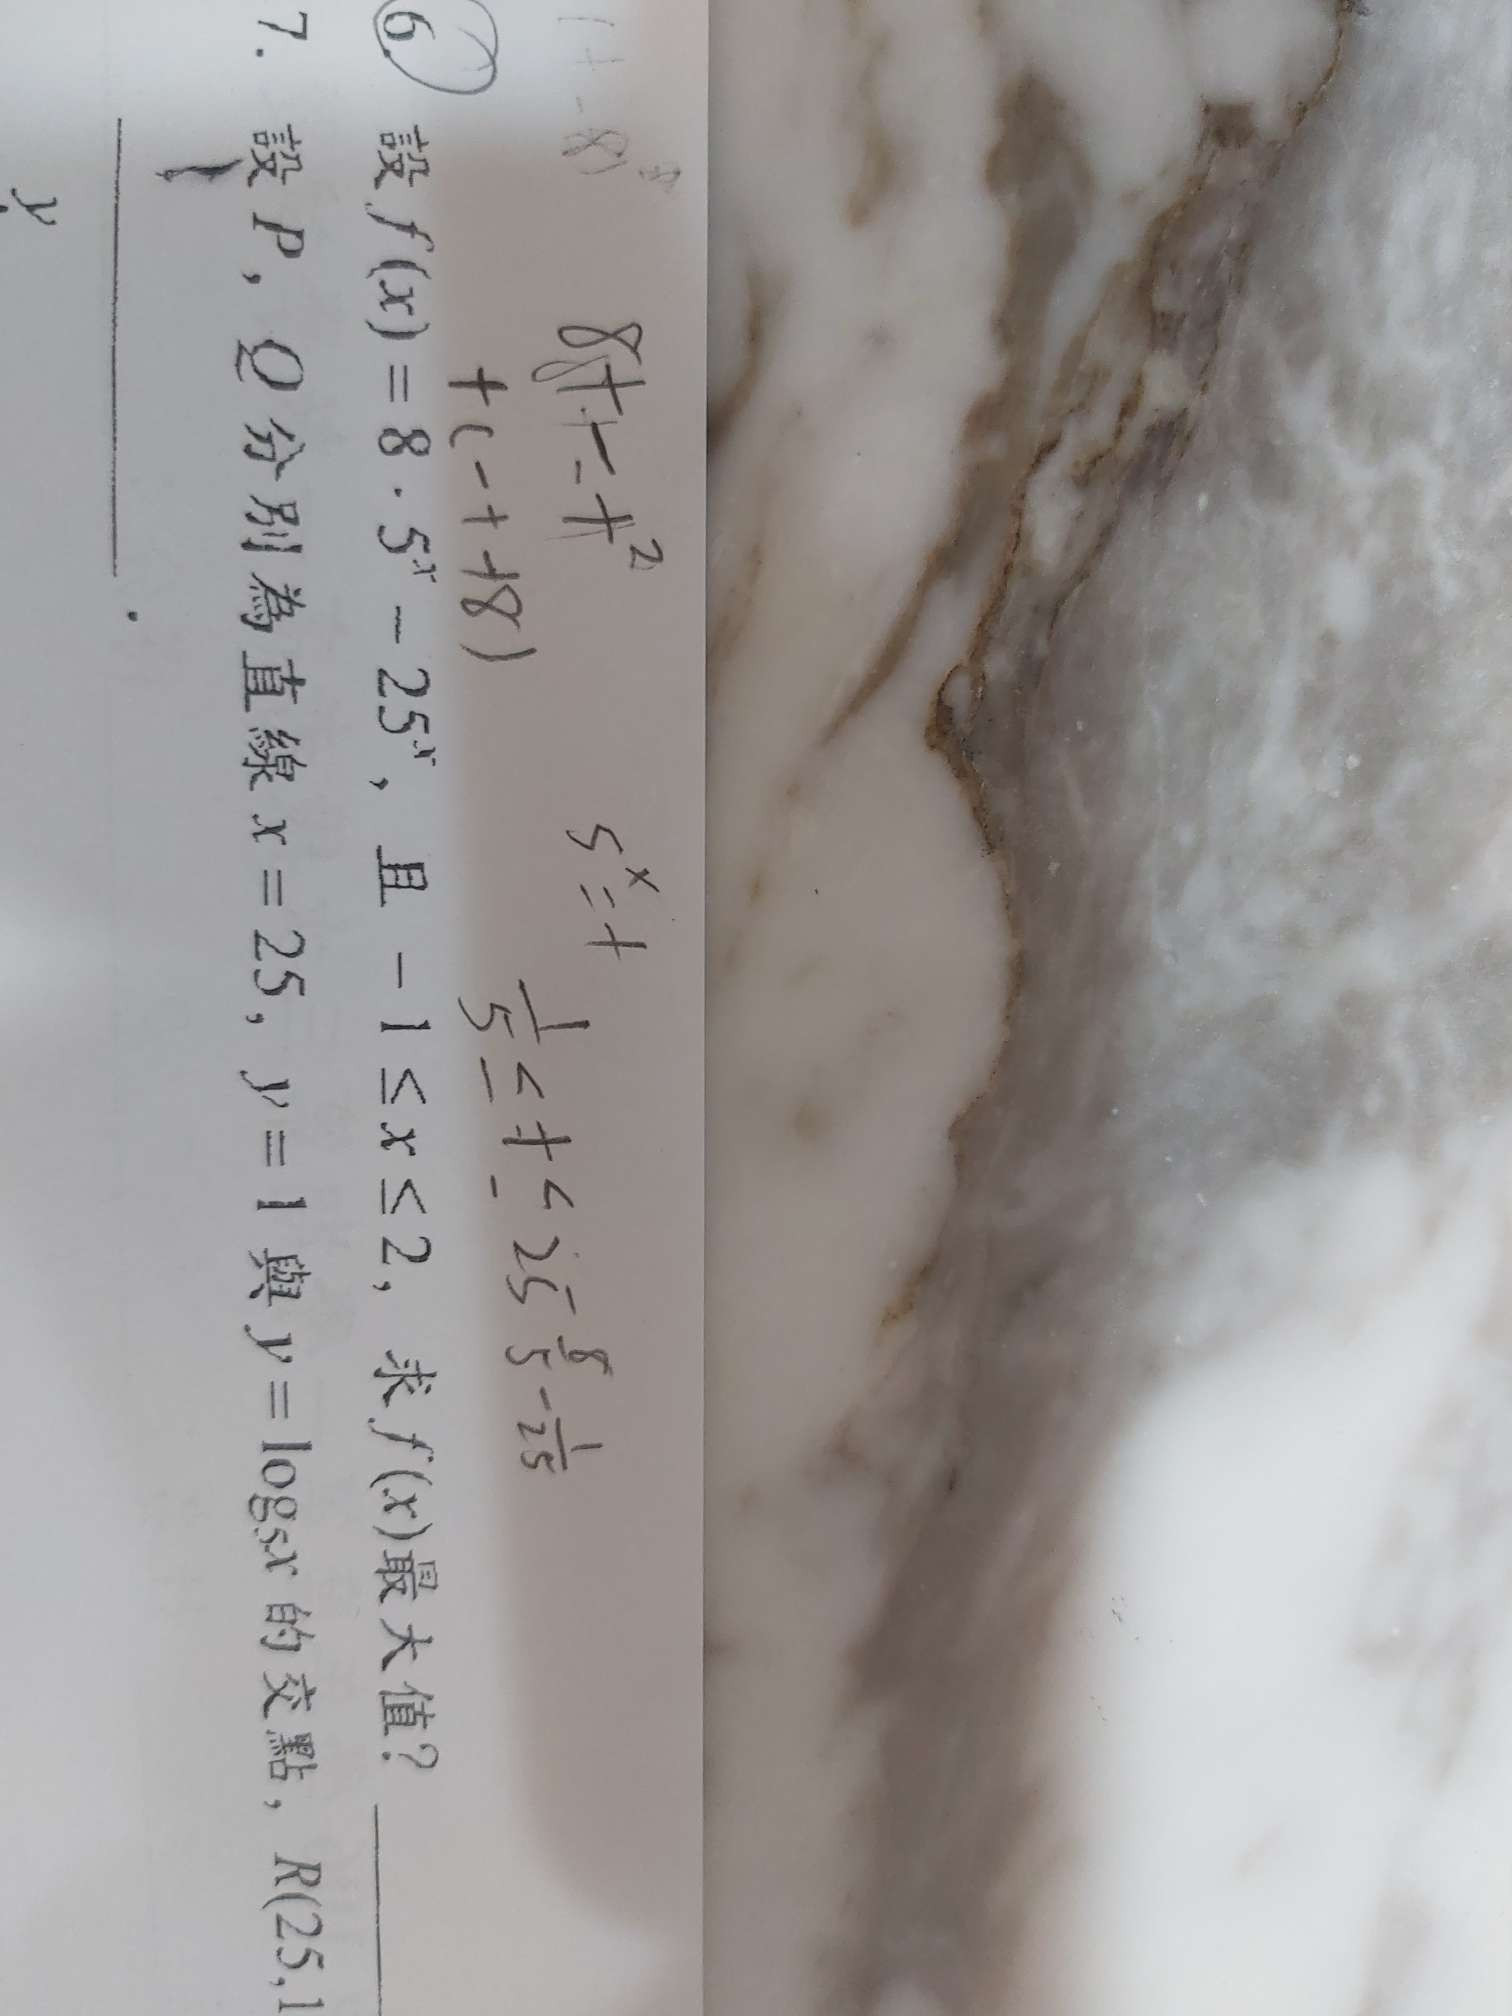 8t - t²
5ˣ = t
t(-t+8)
1/5 ≤ t ≤ 25
8/5 - 1/25
6. 設 f(x) = 8 · 5ˣ - 25ˣ, 且 -1 ≤ x ≤ 2, 求 f(x)最大值?
7. 設 P, Q 分別為直線 x = 25, y = 1 與 y = log₅x 的交點, R(25,1
y